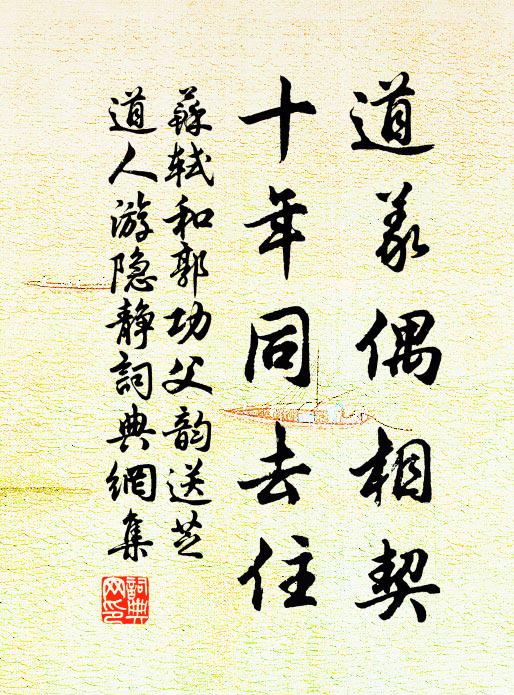 道義偶相契
十年同去住
蘇軾和郭功父韵送芝
道人游隐静詞典網集
詞典網印